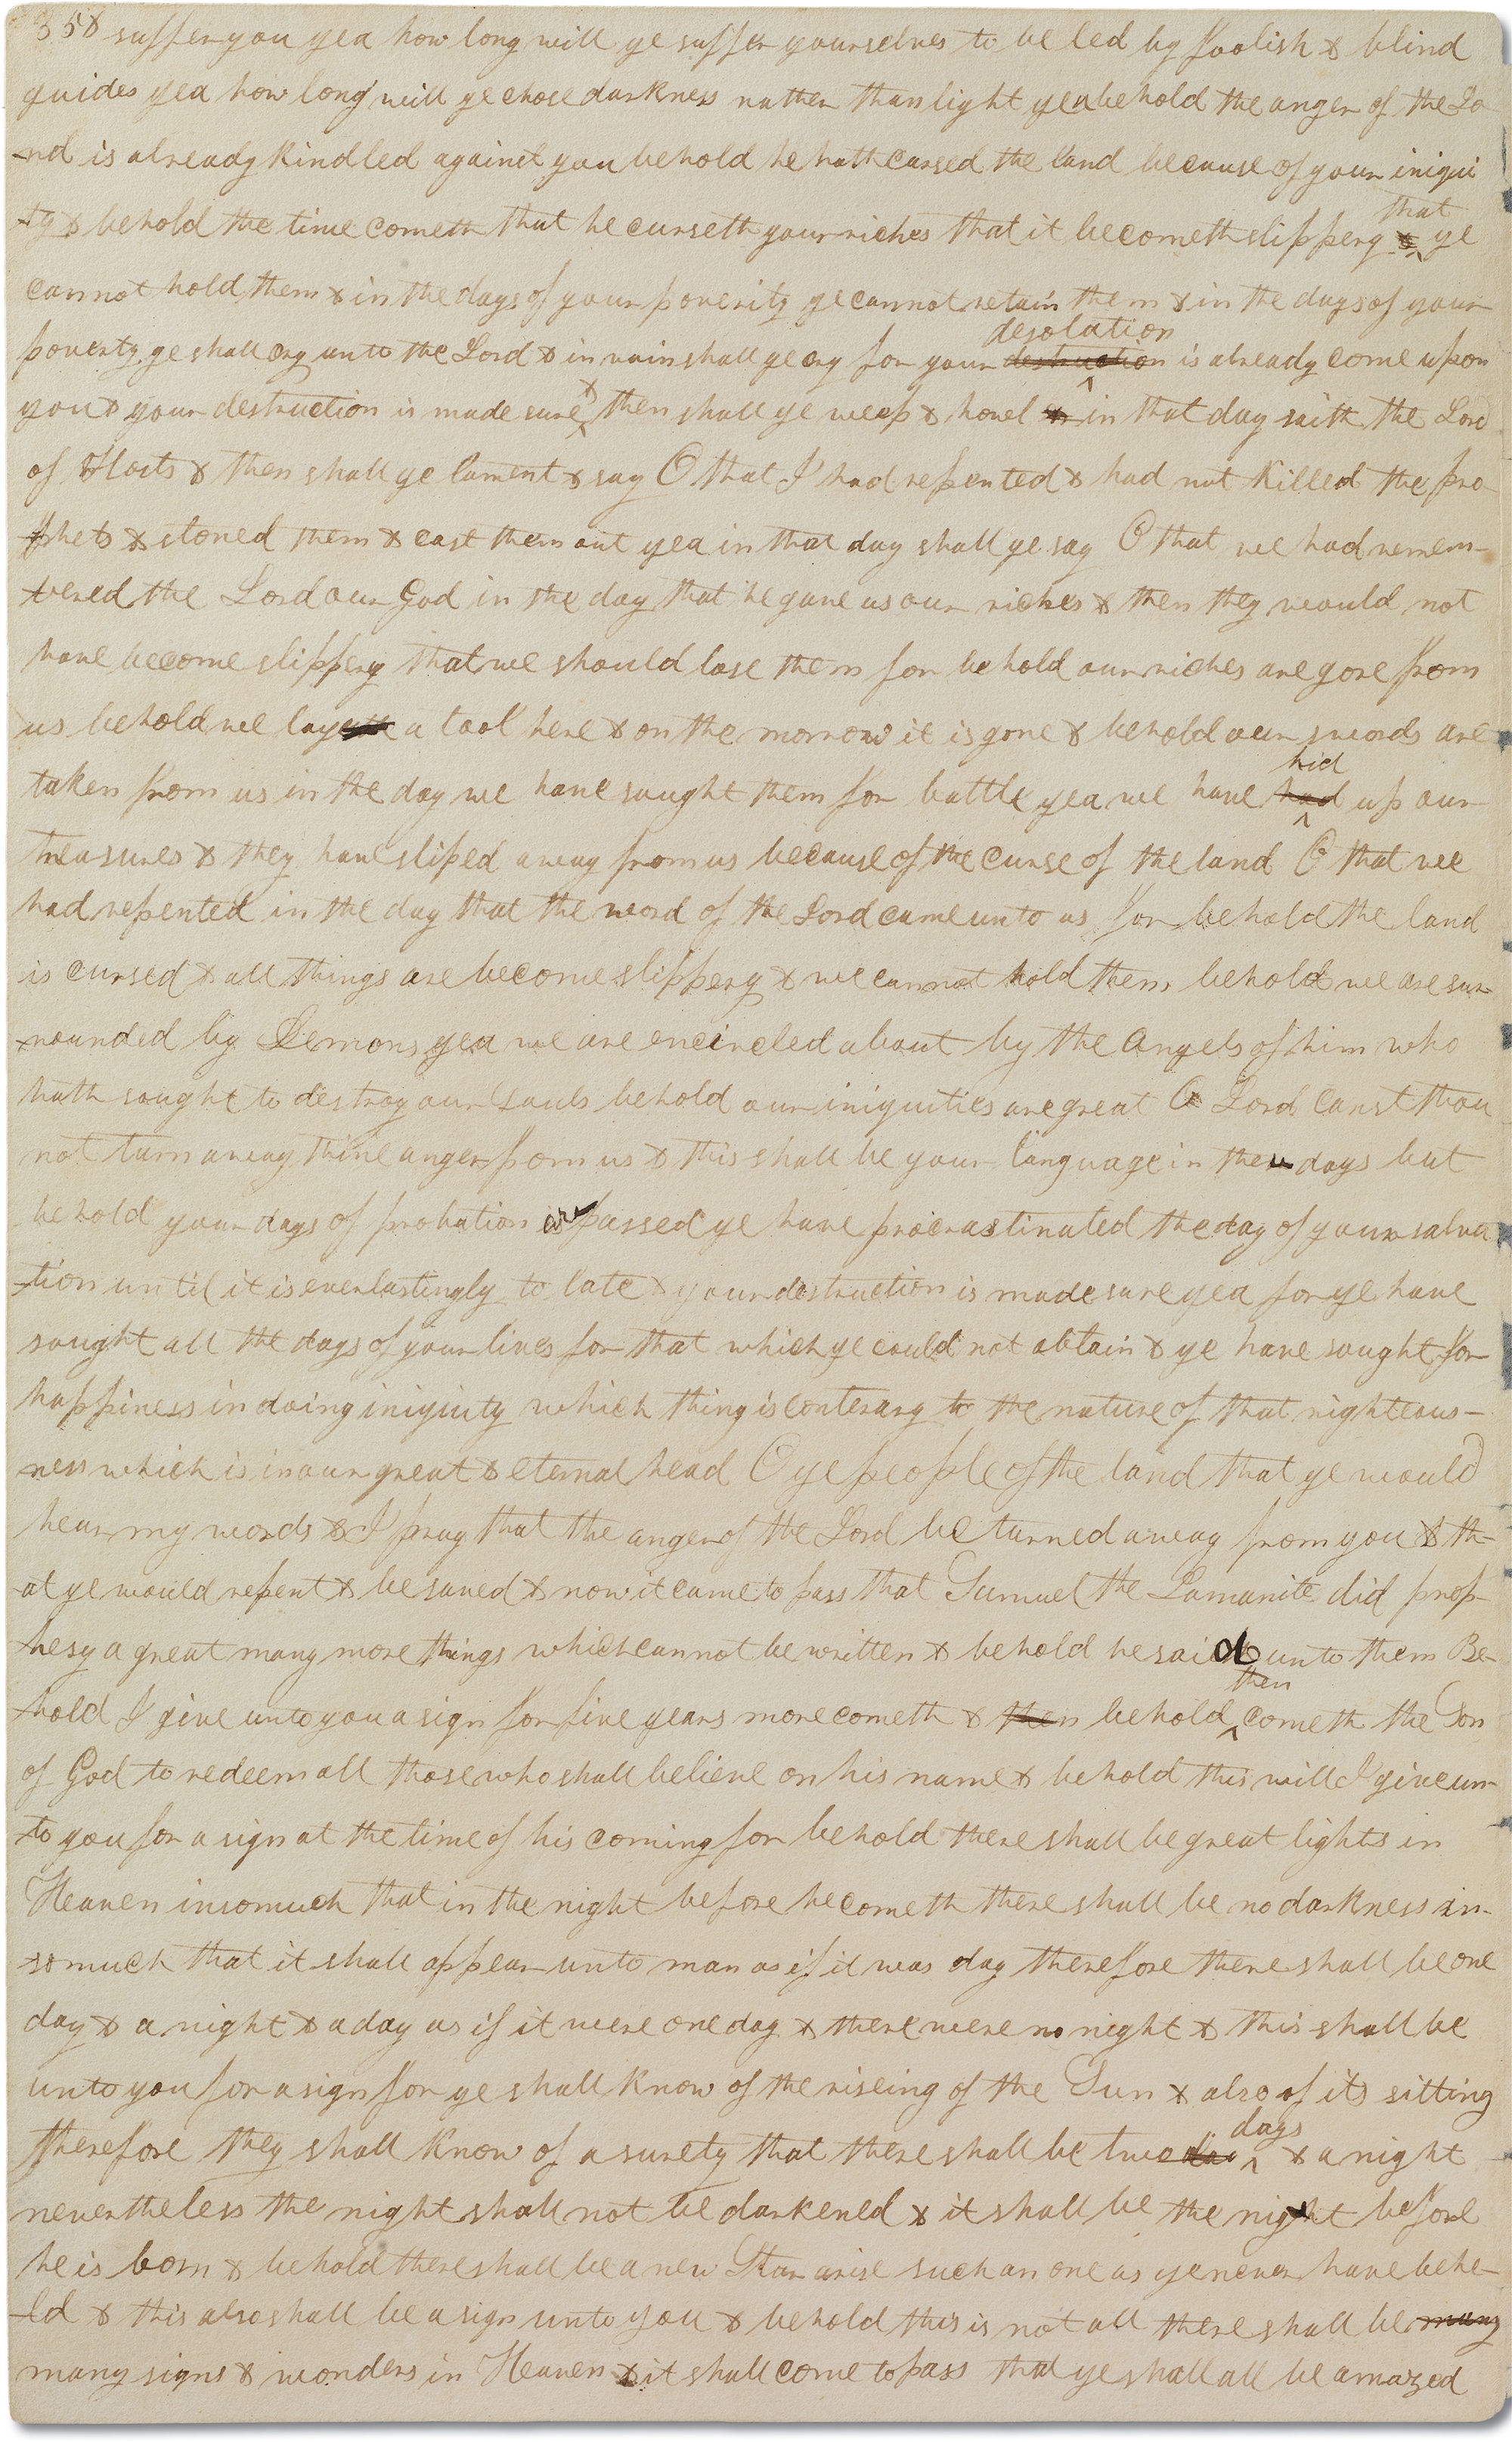 358 suffer you yea how long will ye suffer yourselves to be led by foolish & blind
guides yea how long will ye chose darkness rather than light yea behold the anger of the Lo
-rd is already kindled against you behold he hath cursed the land because of your iniqui
that
-ty & behold the time cometh that he curseth your riches that it becometh slippery & ye
cannot hold them & in the days of your poverity ye cannot retain them & in the days of your
desolation
poverty ye shall cry unto the Lord & in vain shall ye cry for your destruction is already come upon
you & your destruction is made sure & then shall ye weep & howel & in that day saith the Lord
of Hosts & then shall ye lament & say O that I had repented & had not killed the pro
phets & stoned them & cast them out yea in that day shall ye say O that we had remem-
-bered the Lord our God in the day that he gave us our riches & then they would not
have become slippery that we should lose them for behold our riches are gone from
us behold we lay a tool here & on the morrow it is gone & behold our swords are
hid
taken from us in the day we have sought them for battle yea we have had up our
treasures & they have sliped away from us because of the curse of the land O that we
had repented in the day that the word of the Lord came unto us for behold the land
is cursed & all things are become slippery & we cannot hold them behold we are sur
-rounded by Demons yea we are encircled about by the Angels of him who
hath sought to destroy our Souls behold our iniquities are great O Lord canst thou
not turn away thine anger from us & this shall be your language in them days but
behold your days of probation are passed ye have procrastinated the day of your salva
-tion until it is everlastingly to late & your destruction is made sure yea for ye have
sought all the days of your lives for that which ye could not obtain & ye have sought for
happiness in doing iniquity which thing is conterary to the nature of that righteous-
ness which is in our great & eternal head O ye people of the land that ye would
hear my words & I pray that the anger of the Lord be turned away from you & th-
-at ye would repent & be saved & now it came to pass that Samuel the Lamanite did prop-
hesy a great many more things which cannot be written & behold he said unto them Be-
then
-hold I give unto you a sign for five years more cometh & then behold cometh the Son
of God to redeem all those who shall believe on his name & behold this will I give un-
-to you for a sign at the time of his coming for behold there shall be great lights in
Heaven insomuch that in the night before he cometh there shall be no darkness in-
-somuch that it shall appear unto man as if it was day therefore there shall be one
day & a night & a day as if it were one day & there were no night & this shall be
unto you for a sign for ye shall know of the riseing of the Sun & also of its sitting
days
therefore they shall know of a surety that there shall be two day & a night
nevertheless the night shall not be darkened & it shall be the night before
he is born & behold there shall be a new Star arise such an one as ye never have behe-
-ld & this also shall be a sign unto you & behold this is not all there shall be many
many signs & wonders in Heaven & it shall come to pass that ye shall all be amazed